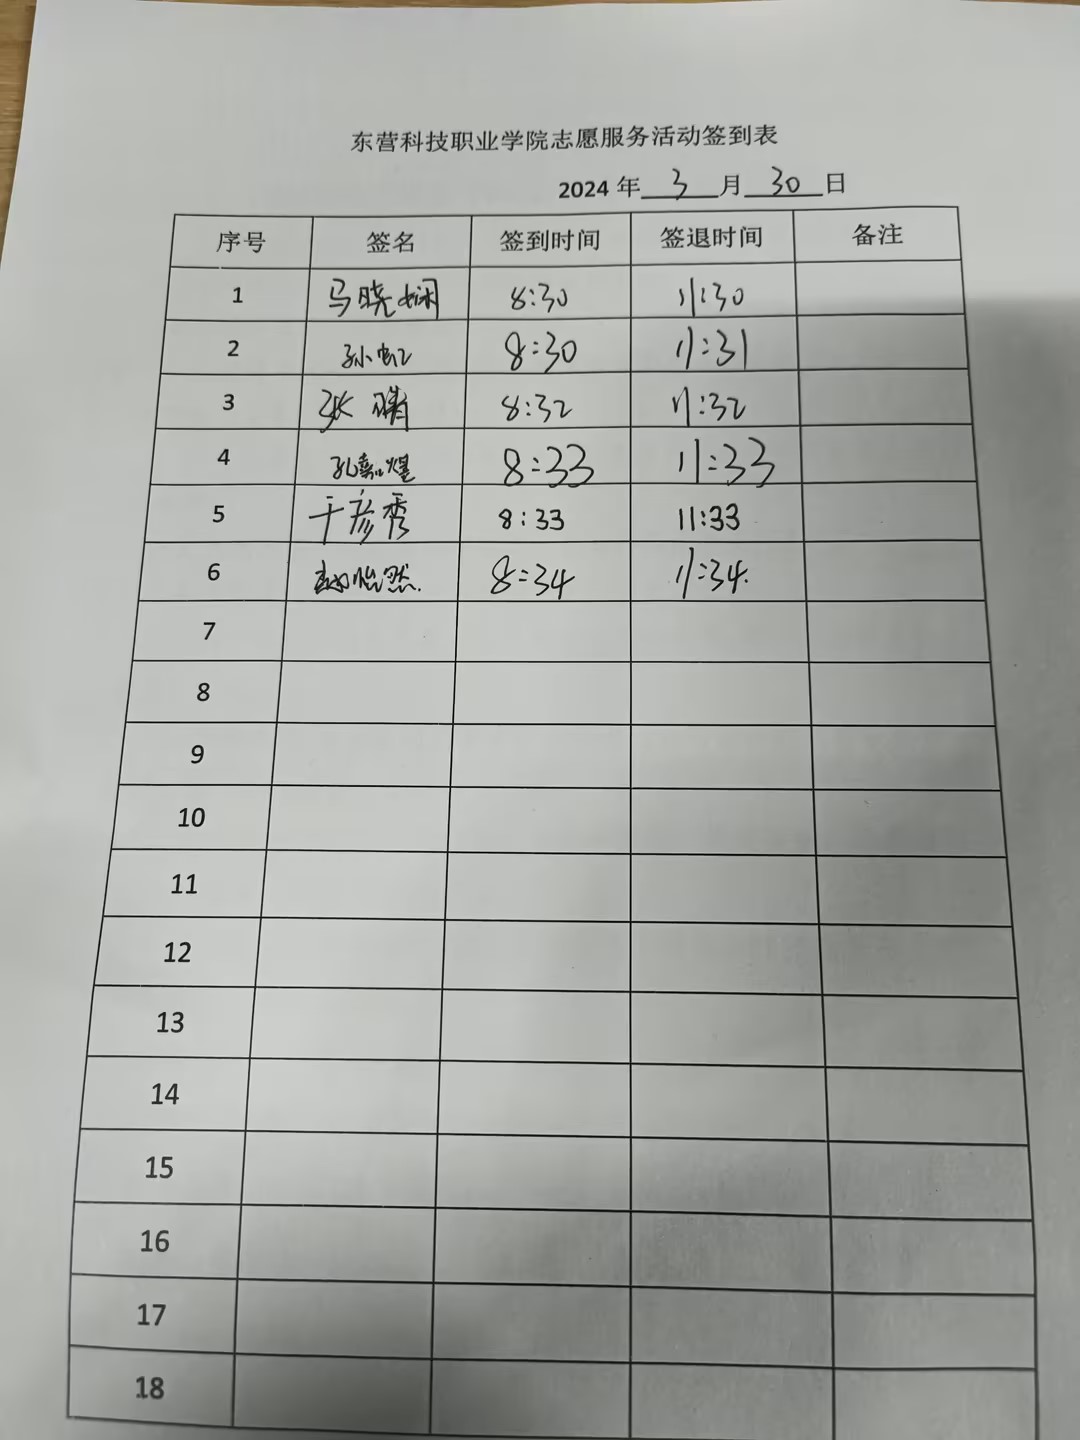 东营科技职业学院志愿服务活动签到表
2024 年 3 月 30 日
序号 签名 签到时间 签退时间 备注
1 马晓娴 8:30 11:30
2 孙虹 8:30 11:31
3 张晴 8:32 11:32
4 孔嘉煜 8:33 11:33
5 于彦秀 8:33 11:33
6 怡然 8:34 11:34
7
8
9
10
11
12
13
14
15
16
17
18